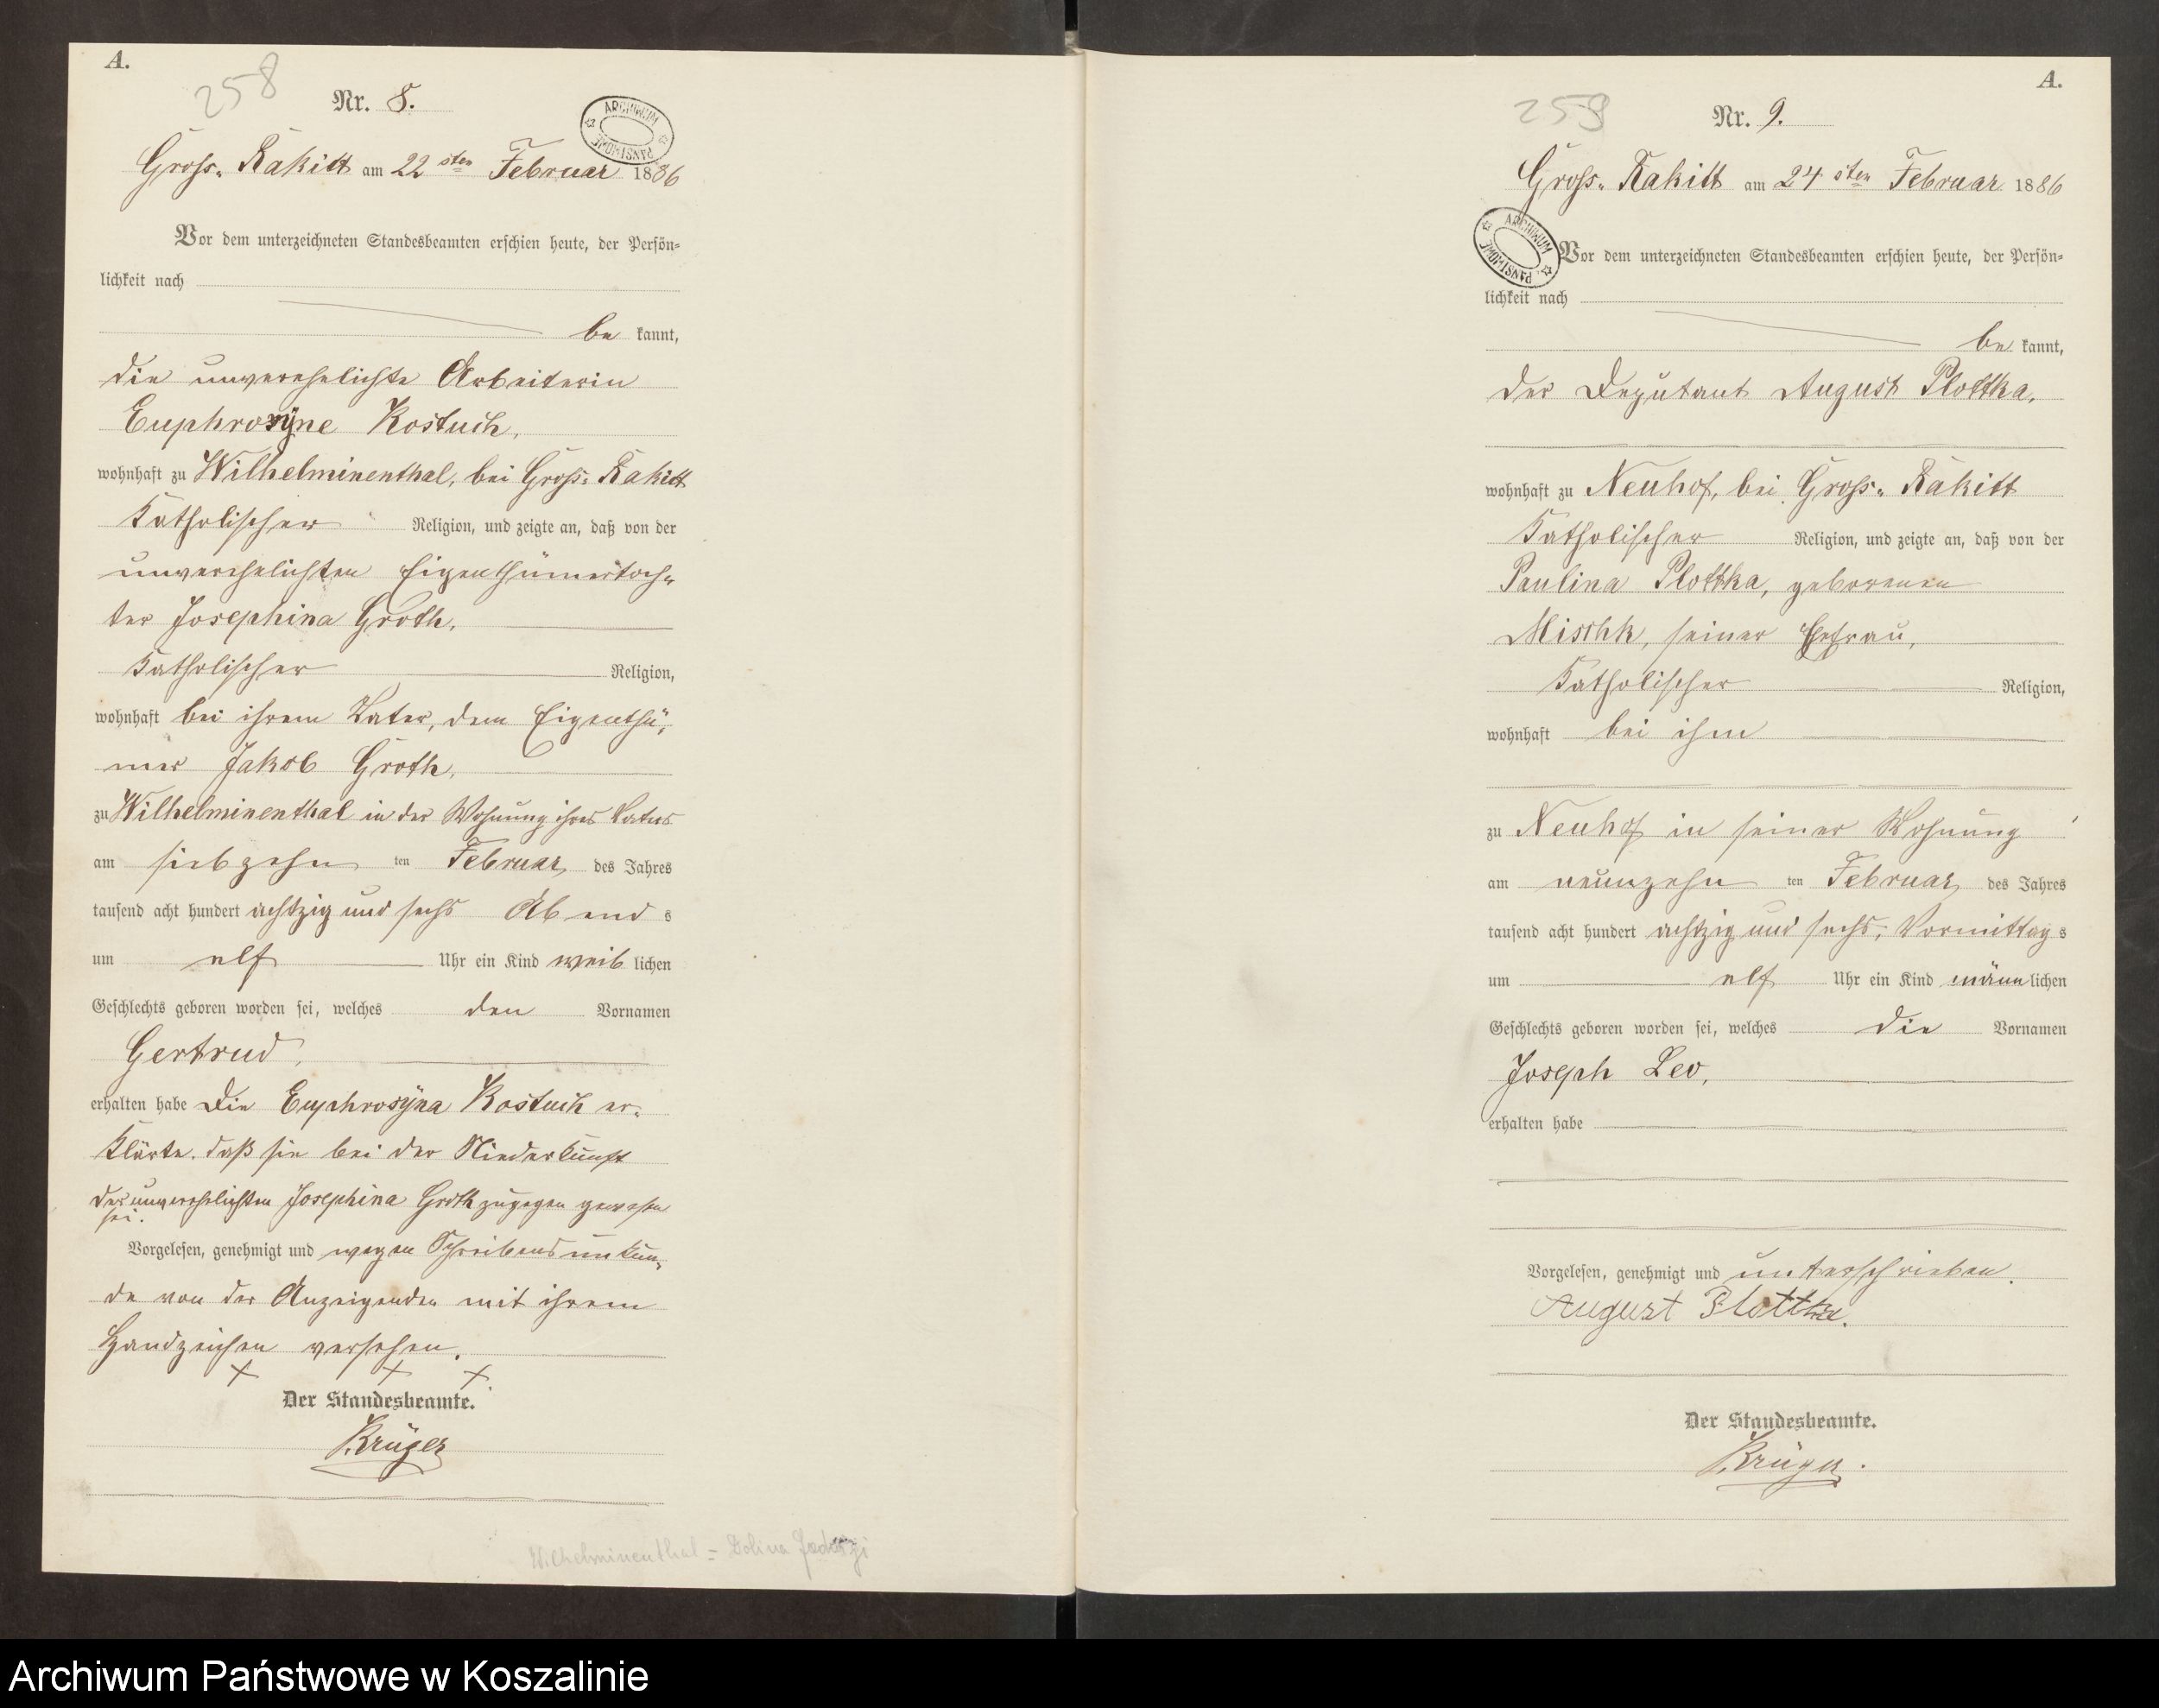 A.
258
Nr. 8.
ARCHIWUM PAŃSTWOWE
Gross-Rakitt am 22sten Februar 1886
Vor dem unterzeichneten Standesbeamten erschien heute, der Persön-
lichkeit nach
be kannt,
die unverehelichte Arbeiterin
Euphrosyne Kostuch,
wohnhaft zu Wilhelminenthal, bei Gross-Rakitt
Katholischer Religion, und zeigte an, daß von der
unverehelichten Eigenthümertoch-
ter Josephina Groth,
Katholischer Religion,
wohnhaft bei ihrem Vater, dem Eigenthü-
mer Jakob Groth,
zu Wilhelminenthal in der Wohnung ihres Vaters
am siebzehn ten Februar des Jahres
tausend acht hundert achtzig und sechs Abend s
um elf Uhr ein Kind weib lichen
Geschlechts geboren worden sei, welches den Vornamen
Gertrud,
erhalten habe Die Euphrosyna Kostuch er-
klärte, daß sie bei der Niederkunft
der unverehelichten Josephina Groth zugegen gewesen
sei.
Vorgelesen, genehmigt und wegen Schreibensunkun-
de von der Anzeigenden mit ihrem
Handzeichen versehen.
+ + +
Der Standesbeamte.
Krüger
Wilhelminenthal = Dolina
A.
259
Nr. 9.
Gross-Rakitt am 24sten Februar 1886
ARCHIWUM PAŃSTWOWE
Vor dem unterzeichneten Standesbeamten erschien heute, der Persön-
lichkeit nach
be kannt,
der Deputant August Plottka,
wohnhaft zu Neuhof, bei Gross-Rakitt
Katholischer Religion, und zeigte an, daß von der
Paulina Plottka, geborenen
Mischk, seiner Ehefrau,
Katholischer Religion,
wohnhaft bei ihm
zu Neuhof in seiner Wohnung
am neunzehn ten Februar des Jahres
tausend acht hundert achtzig und sechs, Vormittag s
um elf Uhr ein Kind männ lichen
Geschlechts geboren worden sei, welches die Vornamen
Joseph Leo,
erhalten habe
Vorgelesen, genehmigt und unterschrieben.
August Plottka.
Der Standesbeamte.
Krüger.
Archiwum Państwowe w Koszalinie